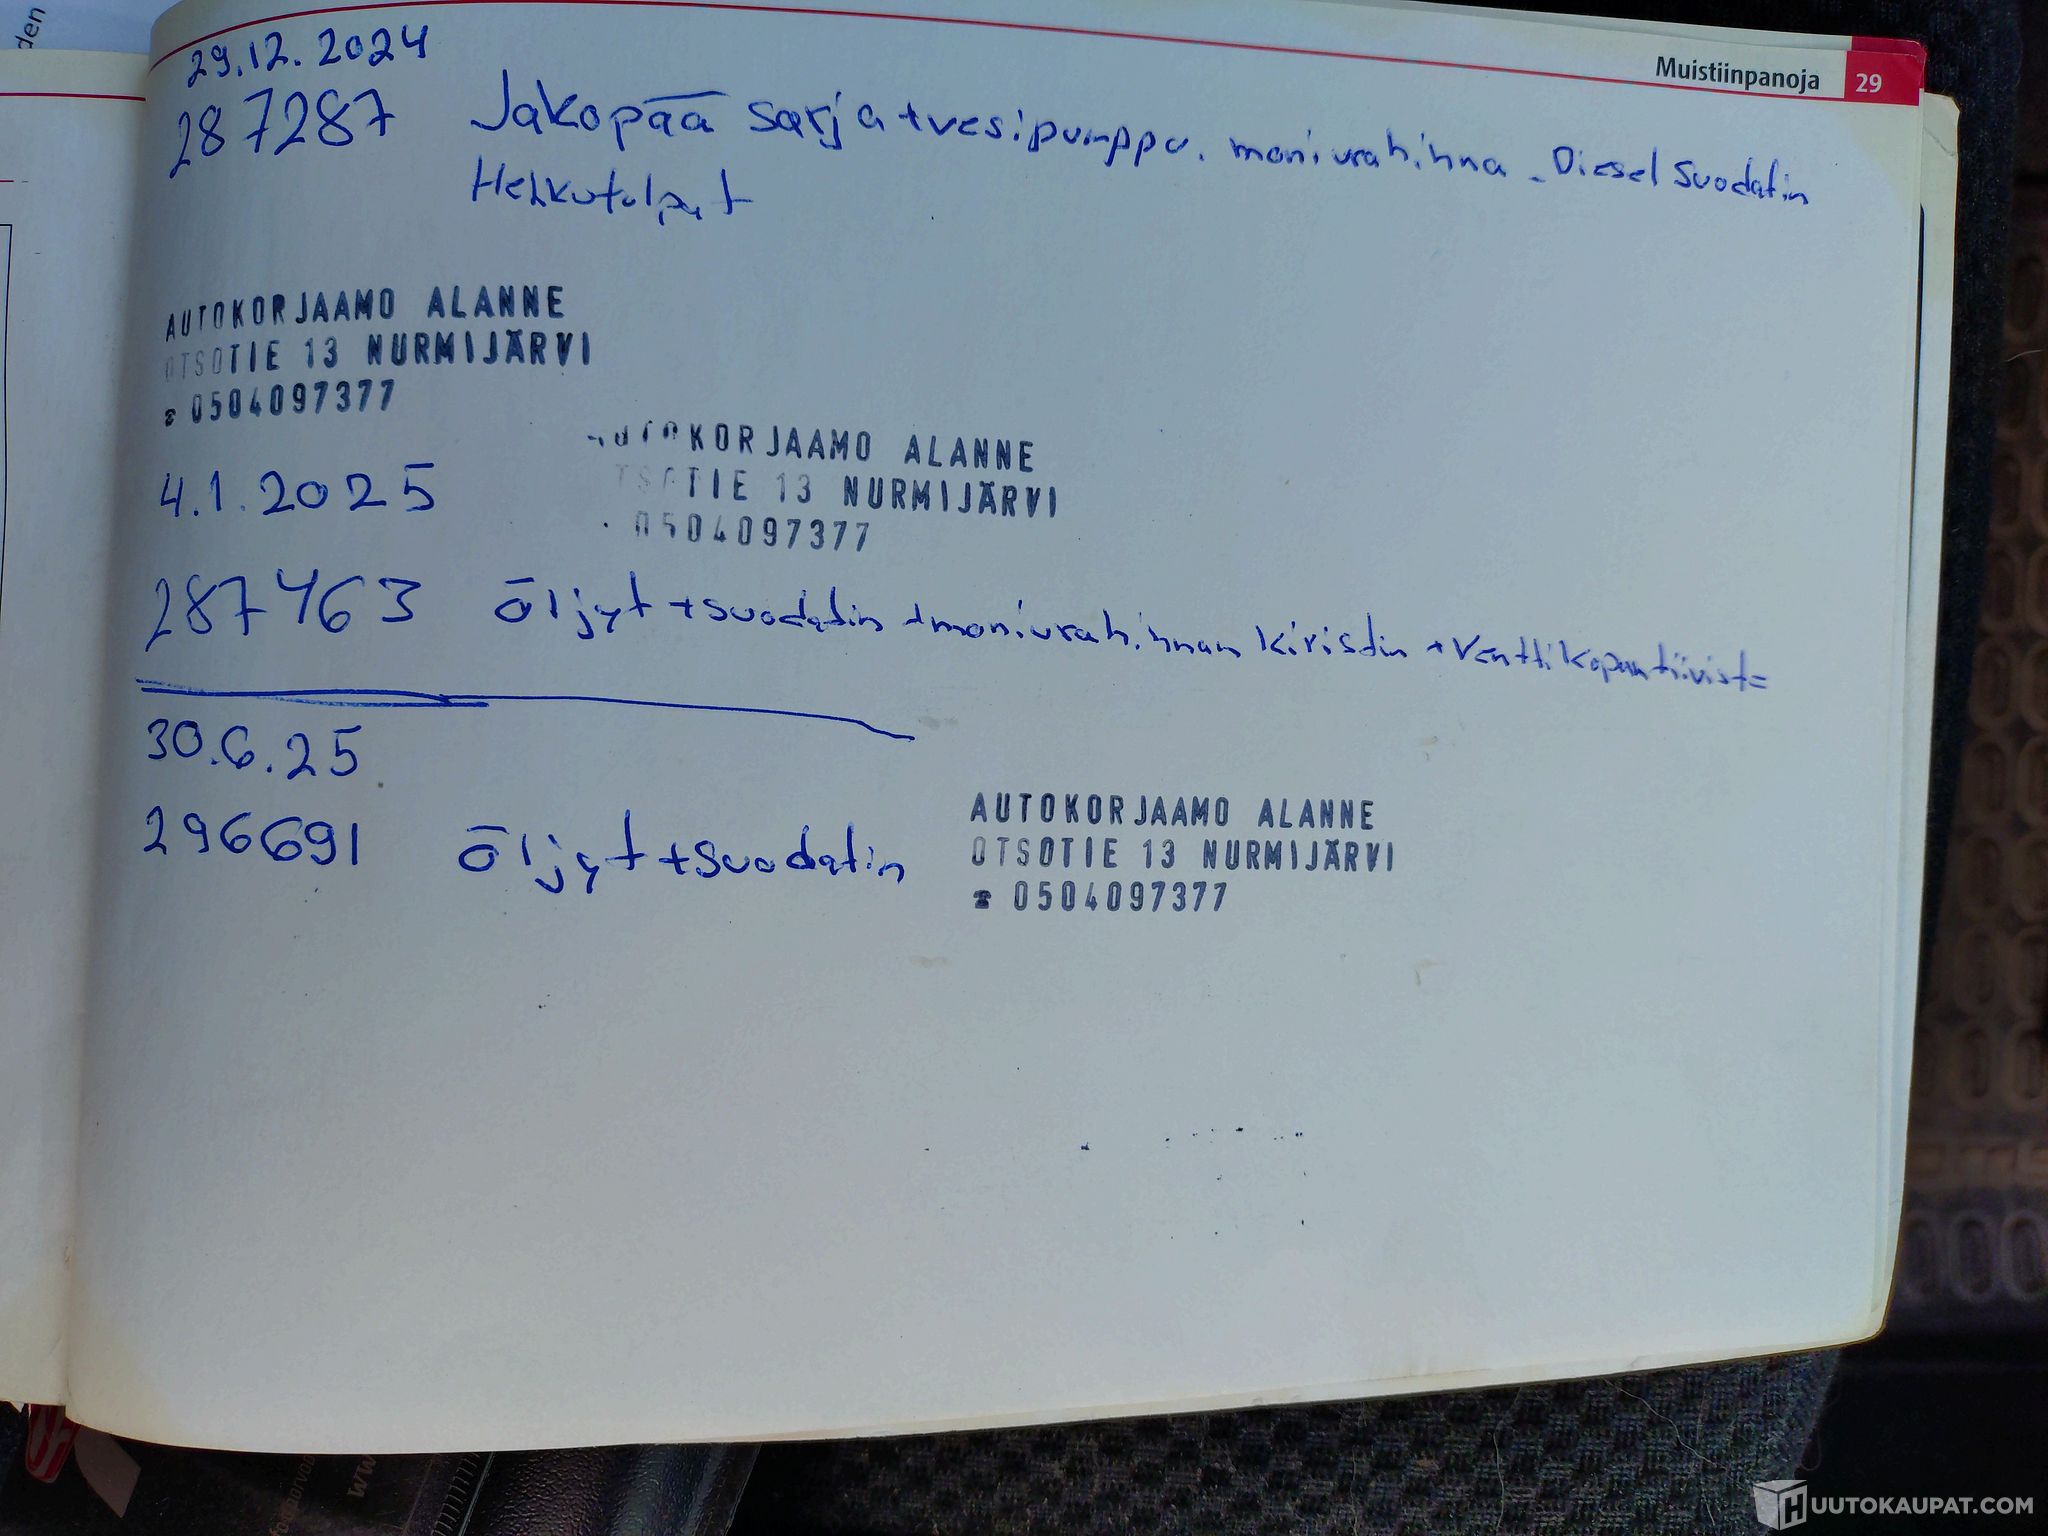 den
Muistiinpanoja 29
29.12.2024
287287 Jakopää sarja + vesipumppu. moniurahihna - Diesel Suodatin
Hehkutulpat
AUTOKORJAAMO ALANNE
OTSOTIE 13 NURMIJÄRVI
☎ 0504097377
4.1.2025
AUTOKORJAAMO ALANNE
OTSOTIE 13 NURMIJÄRVI
0504097377
287463 Öljyt + suodatin + moniurahihnan kiristin + Venttikopantiivist=
30.6.25
296691 Öljyt + suodatin
AUTOKORJAAMO ALANNE
OTSOTIE 13 NURMIJÄRVI
☎ 0504097377
HUUTOKAUPAT.COM